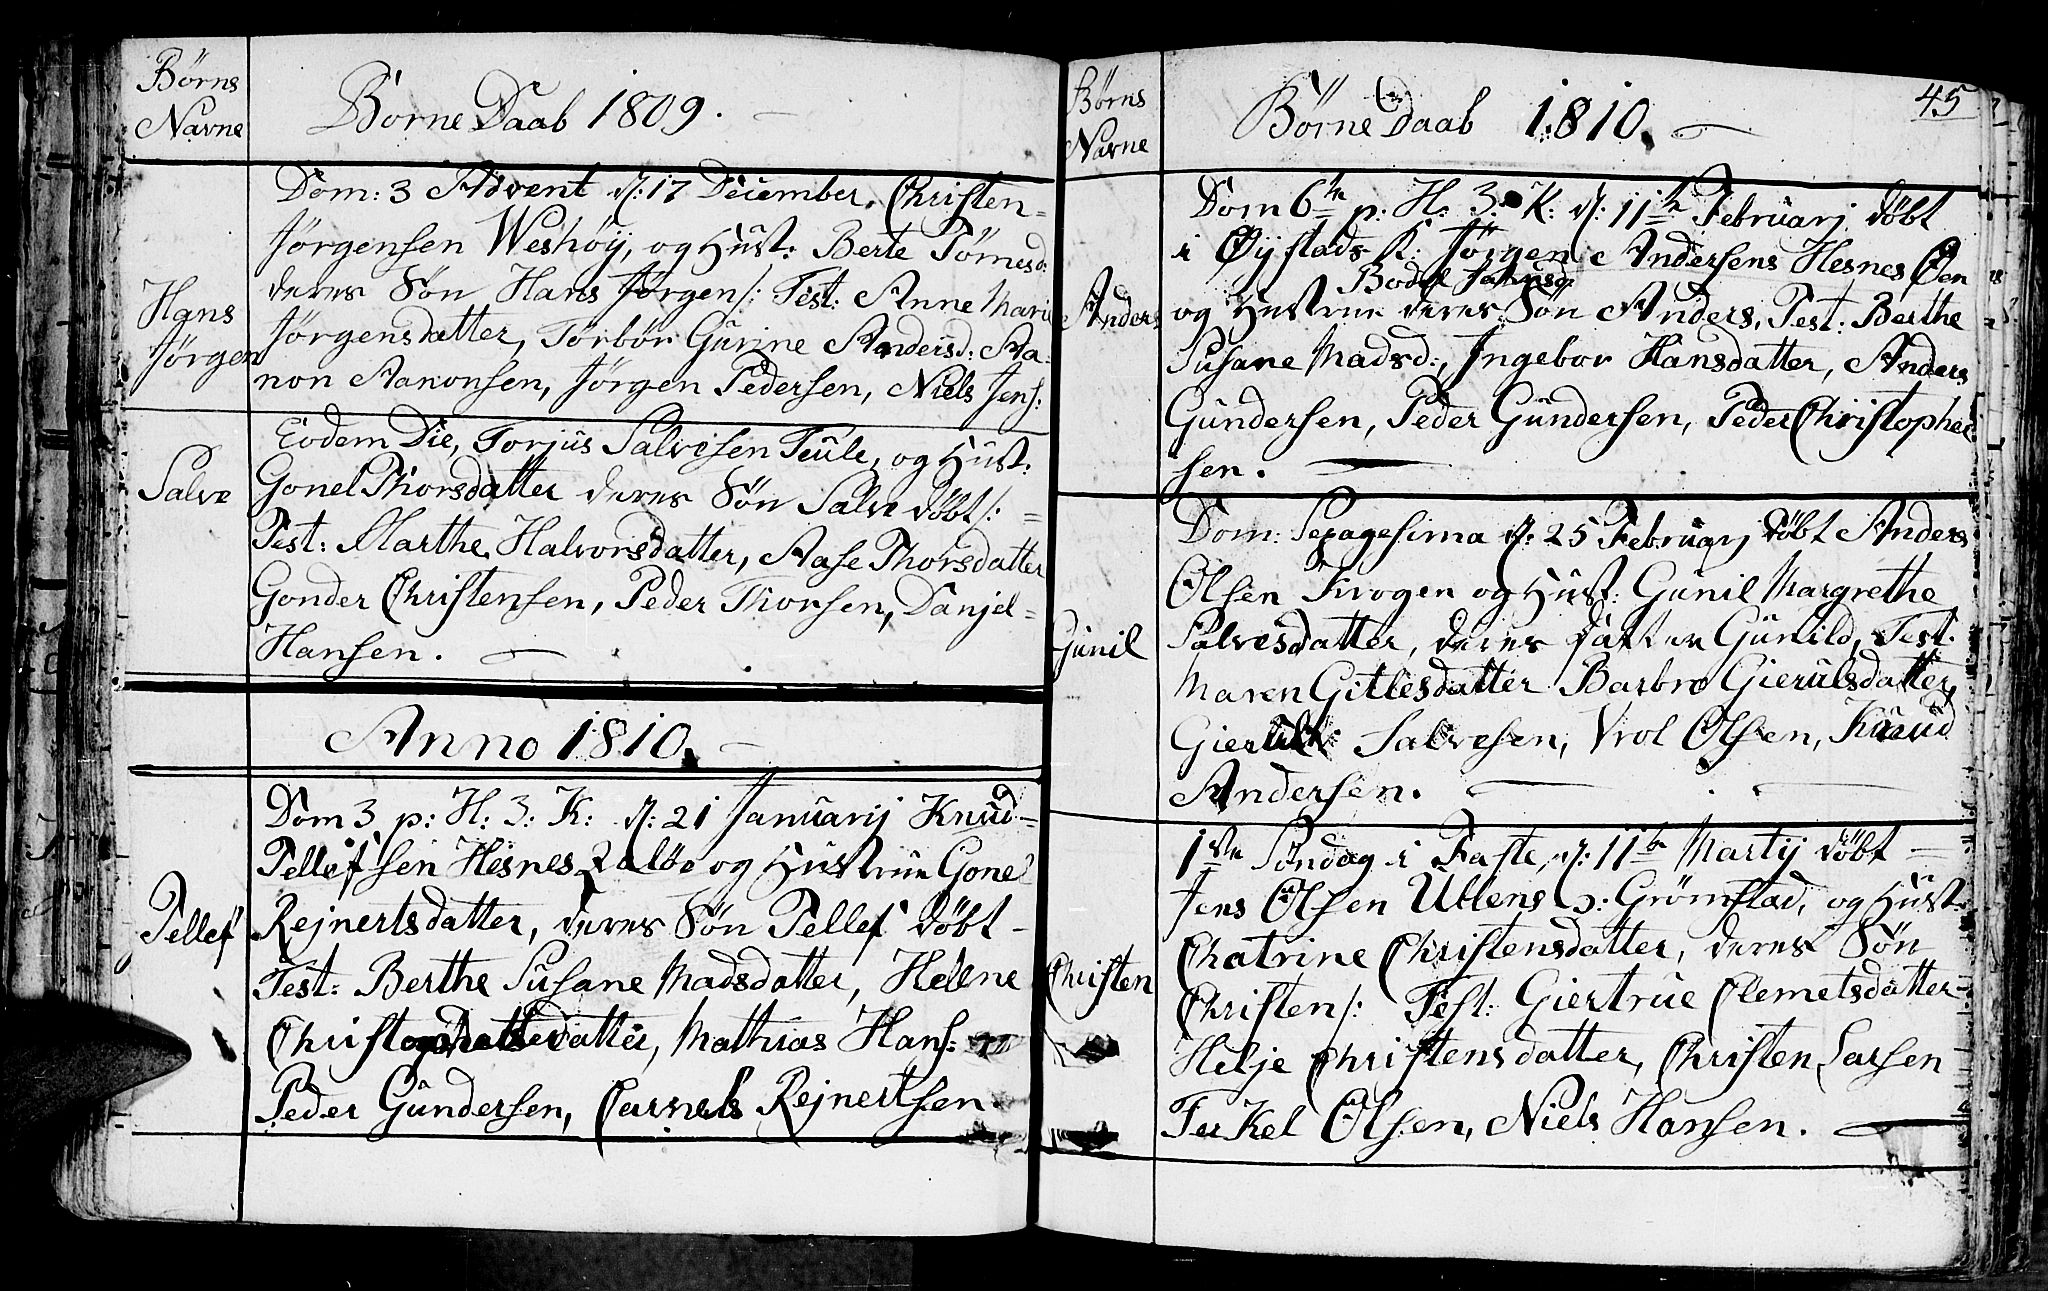 Børns
Navne
Børne Daab 1809.
Dom: 3 Advent d: 17 December, Christen
Jørgensen Weshøy, og Hust: Berte Tørresd:
Hans
Jørgen
deres Søn Hans Jørgen /: Test: Anne Marie
Jørgensdatter, Torbør Gurine Andersd: Aa-
non Aanonsen, Jørgen Pedersen, Niels Jens:
Salve
Eodem Die, Torjus Salvesen Teule, og Hust:
Gonel Thorsdatter deres Søn Salve døbt /:
Test: Marthe Halvorsdatter, Aase Thorsdatter
Gonder Christensen, Peder Thorsen, Danjel
Hansen.
Anno 1810.
Dom 3 p: H: 3: K: d: 21 Januarij Knud
Tellefsen Hesnes og Hustrue Gonel
Tellef
Rejnertsdatter, deres Søn Tellef døbt
Test: Berthe Susane Madsdatter, Hellene
datter, Mathias Hans:
Peder Gundersen, Rejnertsen.
45
Børns
Navne
Børne Daab 1810.
Dom 6te p: H: 3. K: d: 11te Februarj døbt
i Øystads K: Jørgen Andersens Hesnes Øen
Bodel
Anders
og Hustrue deres Søn Anders, Test: Berthe
Susane Madsd:, Ingebor Hansdatter, Anders
Gundersen, Peder Gundersen, Peder Christopher
sen.
Dom: Sexagesima d: 25 Februarj døbt Anders
Olsen Krogen og Hust: Gunil Margrethe
Gunil
Salvesdatter, deres Datter Gunild, Test:
Maren Gitlesdatter Barbro Gierulsdatter,
Salvesen, Vrol Olsen, Knud
Andersen.
1ste Søndag i Faste, d: 11te Martij døbt
Jens Olsen Ullens ɔ: Grømstad, og Hust:
Chatrine Christensdatter, deres Søn
Christen
Christen /: Test: Giertrue Clemetsdatter
Helje Christensdatter, Christen Larsen
Terkel Olsen, Niels Hansen.